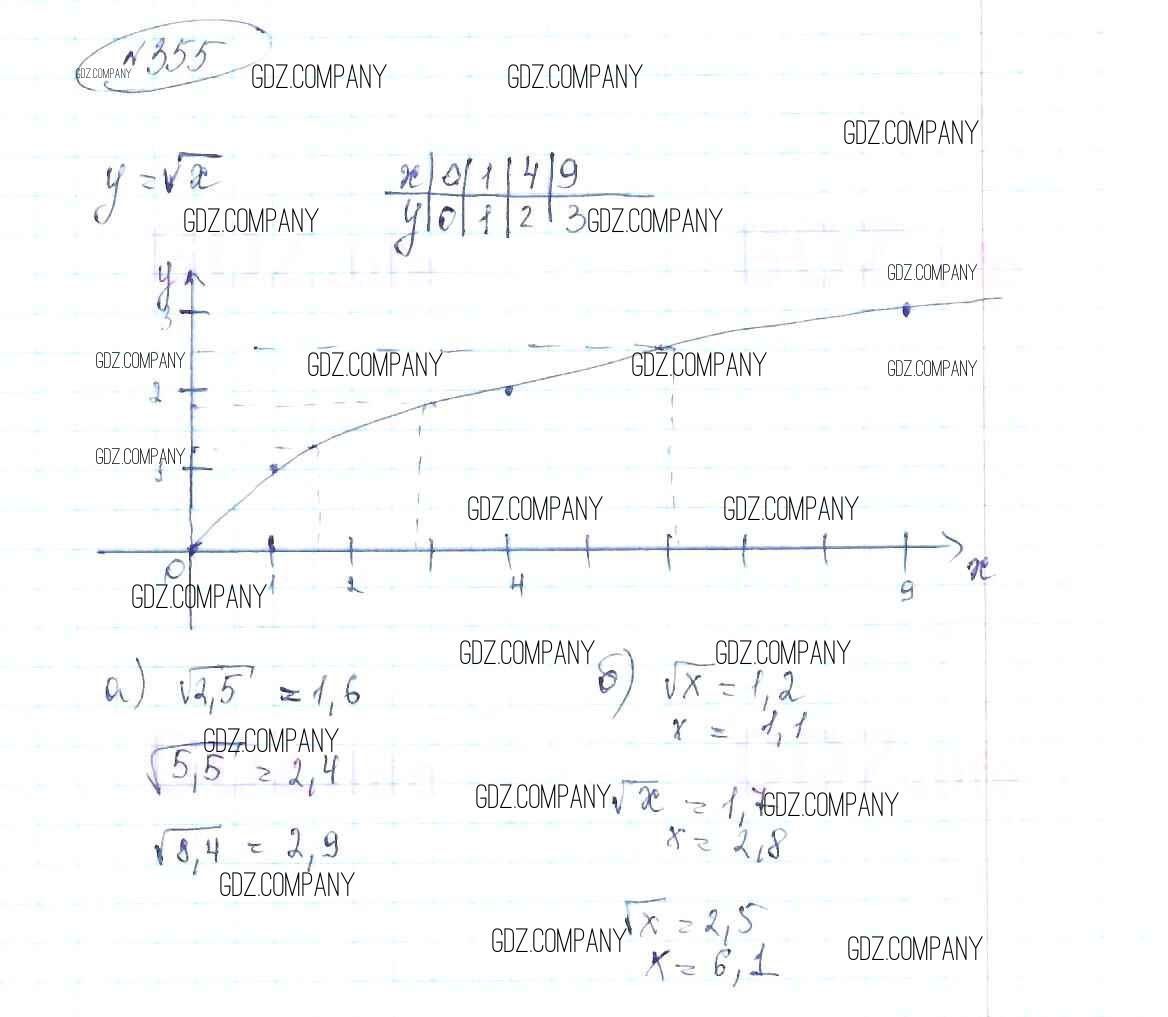 №355
GDZ.COMPANY
GDZ.COMPANY GDZ.COMPANY
GDZ.COMPANY
y = √x
x | 0 | 1 | 4 | 9
y | 0 | 1 | 2 | 3
GDZ.COMPANY GDZ.COMPANY
y
GDZ.COMPANY
3
GDZ.COMPANY GDZ.COMPANY GDZ.COMPANY GDZ.COMPANY
2
GDZ.COMPANY
1
GDZ.COMPANY GDZ.COMPANY
0 1 2 4 9 x
GDZ.COMPANY
GDZ.COMPANY GDZ.COMPANY
а) √2,5 = 1,6
GDZ.COMPANY
√5,5 = 2,4
√8,4 = 2,9
GDZ.COMPANY
б) √x = 1,2
x = 1,1
GDZ.COMPANY GDZ.COMPANY
√x = 1,7
x = 2,8
√x = 2,5
GDZ.COMPANY GDZ.COMPANY
x = 6,1